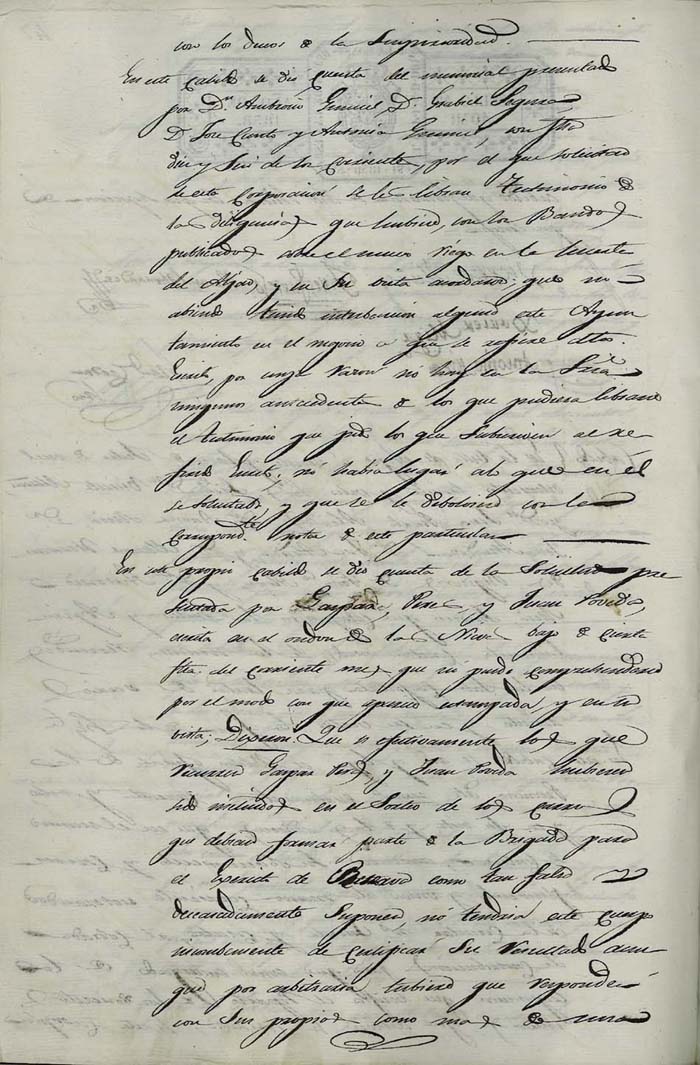 con los de la Superioridad.
En este Cabildo se dio cuenta del memorial presentado
por Dn. Ambrosio Dn. Grabiel Segura
D. Jose Canto y Antonio con fha
diez y seis de los corriente, por el que solicitan
de esta Corporacion se les libran Testimonio de
las diligencias que hubiere, con los Bandos
publicados sobre el nuevo riego en la fuente
del y en su vista acordaron: que no
abiendo tenido intervencion alguna este Ayun
tamiento en el negocio a que se refiere dho.
Escrito, por cuya razon no hay en la Sria
ningunos antecedentes de los que pudiera librarse
el testimonio que piden los que subscriven al re-
ferido Escrito; no habia lugar a lo que en él
se solicitaba, y que se le debolviera con la
correspondte. nota de este particular
En este propio Cabildo se dio cuenta de la Solicitud pre
sentada por Gaspar Perez y Juan Poveda,
escrita en el de la Nieve bajo de
fha. del corriente mes que no pudo comprehenderse
por el modo con que aparece estampada, y en su
vista; Dixeron: Que si efectivamente los que
recurren Gaspar Perez y Juan Poveda hubieran
sido incluidos en el Sorteo de los carros
que debian formar parte de la Brigada para
el Exercito de como tan falso y
descaradamente suponen, no tendria este cuerpo
inconveniente de su resultado aun
que por arbitraria tubiera que responder
con sus propios como mas de una